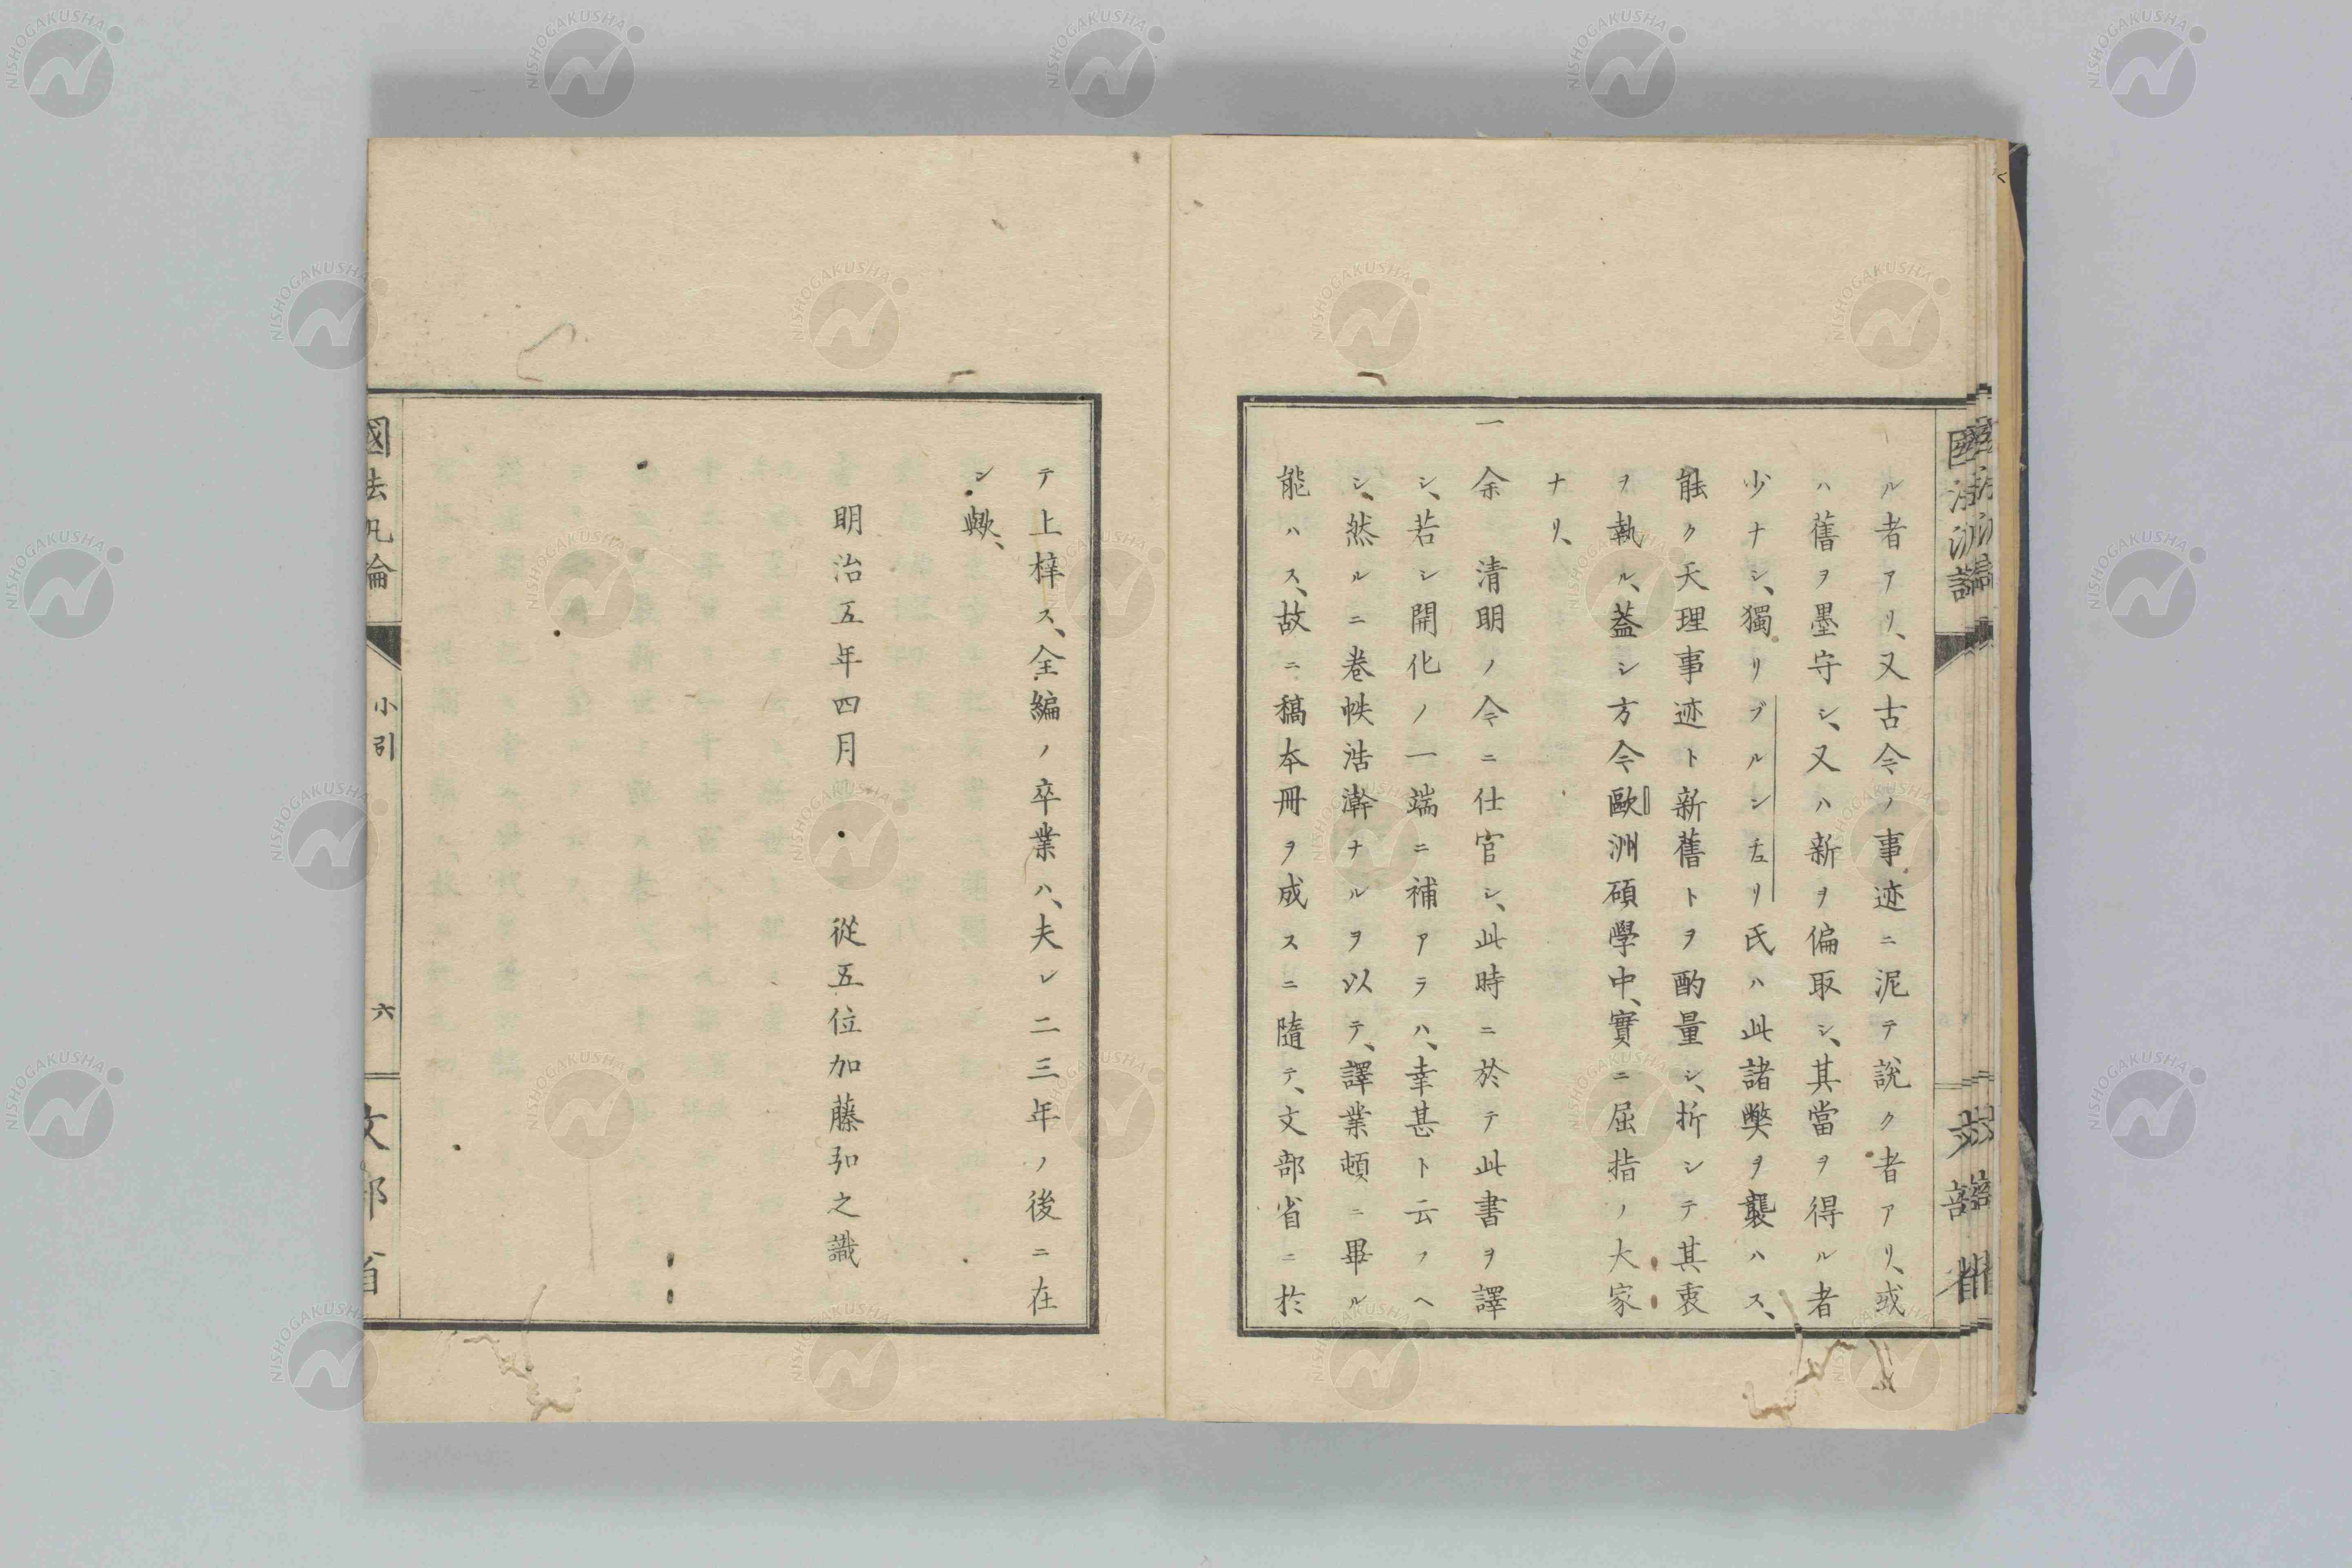 ル者アリ、又古今ノ事迹ニ泥テ說ク者アリ、或
ハ舊ヲ墨守シ、又ハ新ヲ偏取シ、其當ヲ得ル者
少ナシ、獨リブルンチュリ氏ハ此諸弊ヲ襲ハス、
能ク天理事迹ト新舊トヲ酌量シ、折シテ其衷
ヲ執ル、蓋シ方今歐洲碩學中、實ニ屈指ノ大家
ナリ、
一余　清明ノ今ニ仕官シ、此時ニ於テ此書ヲ譯
シ、若シ開化ノ一端ニ補アラハ、幸甚ト云フヘ
シ、然ルニ卷帙浩澣ナルヲ以テ、譯業頓ニ畢ル
能ハス、故ニ稿本冊ヲ成スニ隨テ、文部省ニ於
テ上梓ス、全編ノ卒業ハ、夫レ二三年ノ後ニ在
ン歟、
明治五年四月　從五位加藤弘之識
國法汎論
小引
六
文部省
NISHOGAKUSHA